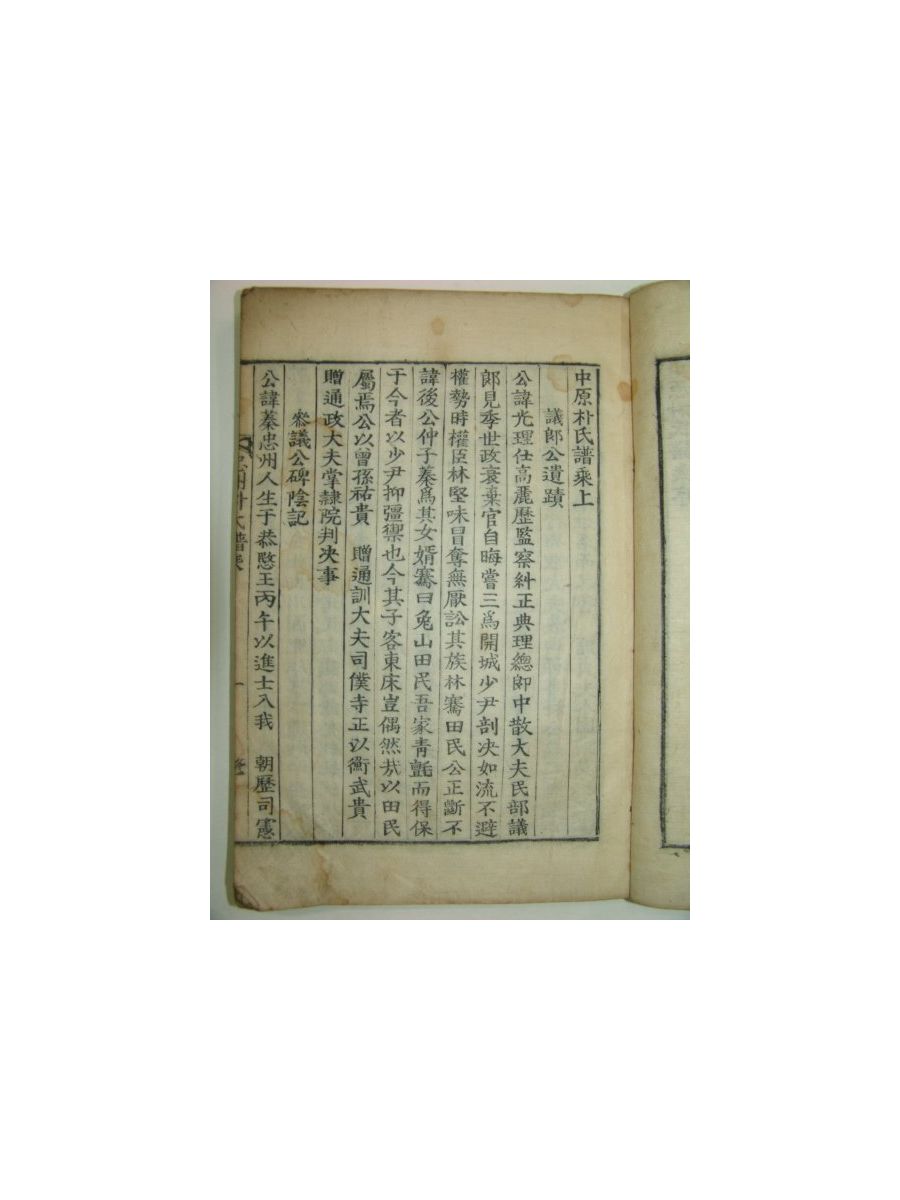 中原朴氏譜乘上
議郎公遺蹟
公諱光理仕高麗歷監察糾正典理總郎中散大夫民部議
郎見季世政衰棄官自晦嘗三爲開城少尹剖决如流不避
權勢時權臣林堅味冒奪無厭訟其族林騫田民公正斷不
諱後公仲子蓁爲其女婿騫曰兔山田民吾家靑氈而得保
于今者以少尹抑彊禦也今其子客東床豈偶然哉以田民
屬焉公以曾孫祐貴 贈通訓大夫司僕寺正以衡武貴
贈通政大夫掌隸院判决事
參議公碑陰記
公諱蓁忠州人生于恭愍王丙午以進士入我 朝歷司憲
忠州朴氏譜乘 一